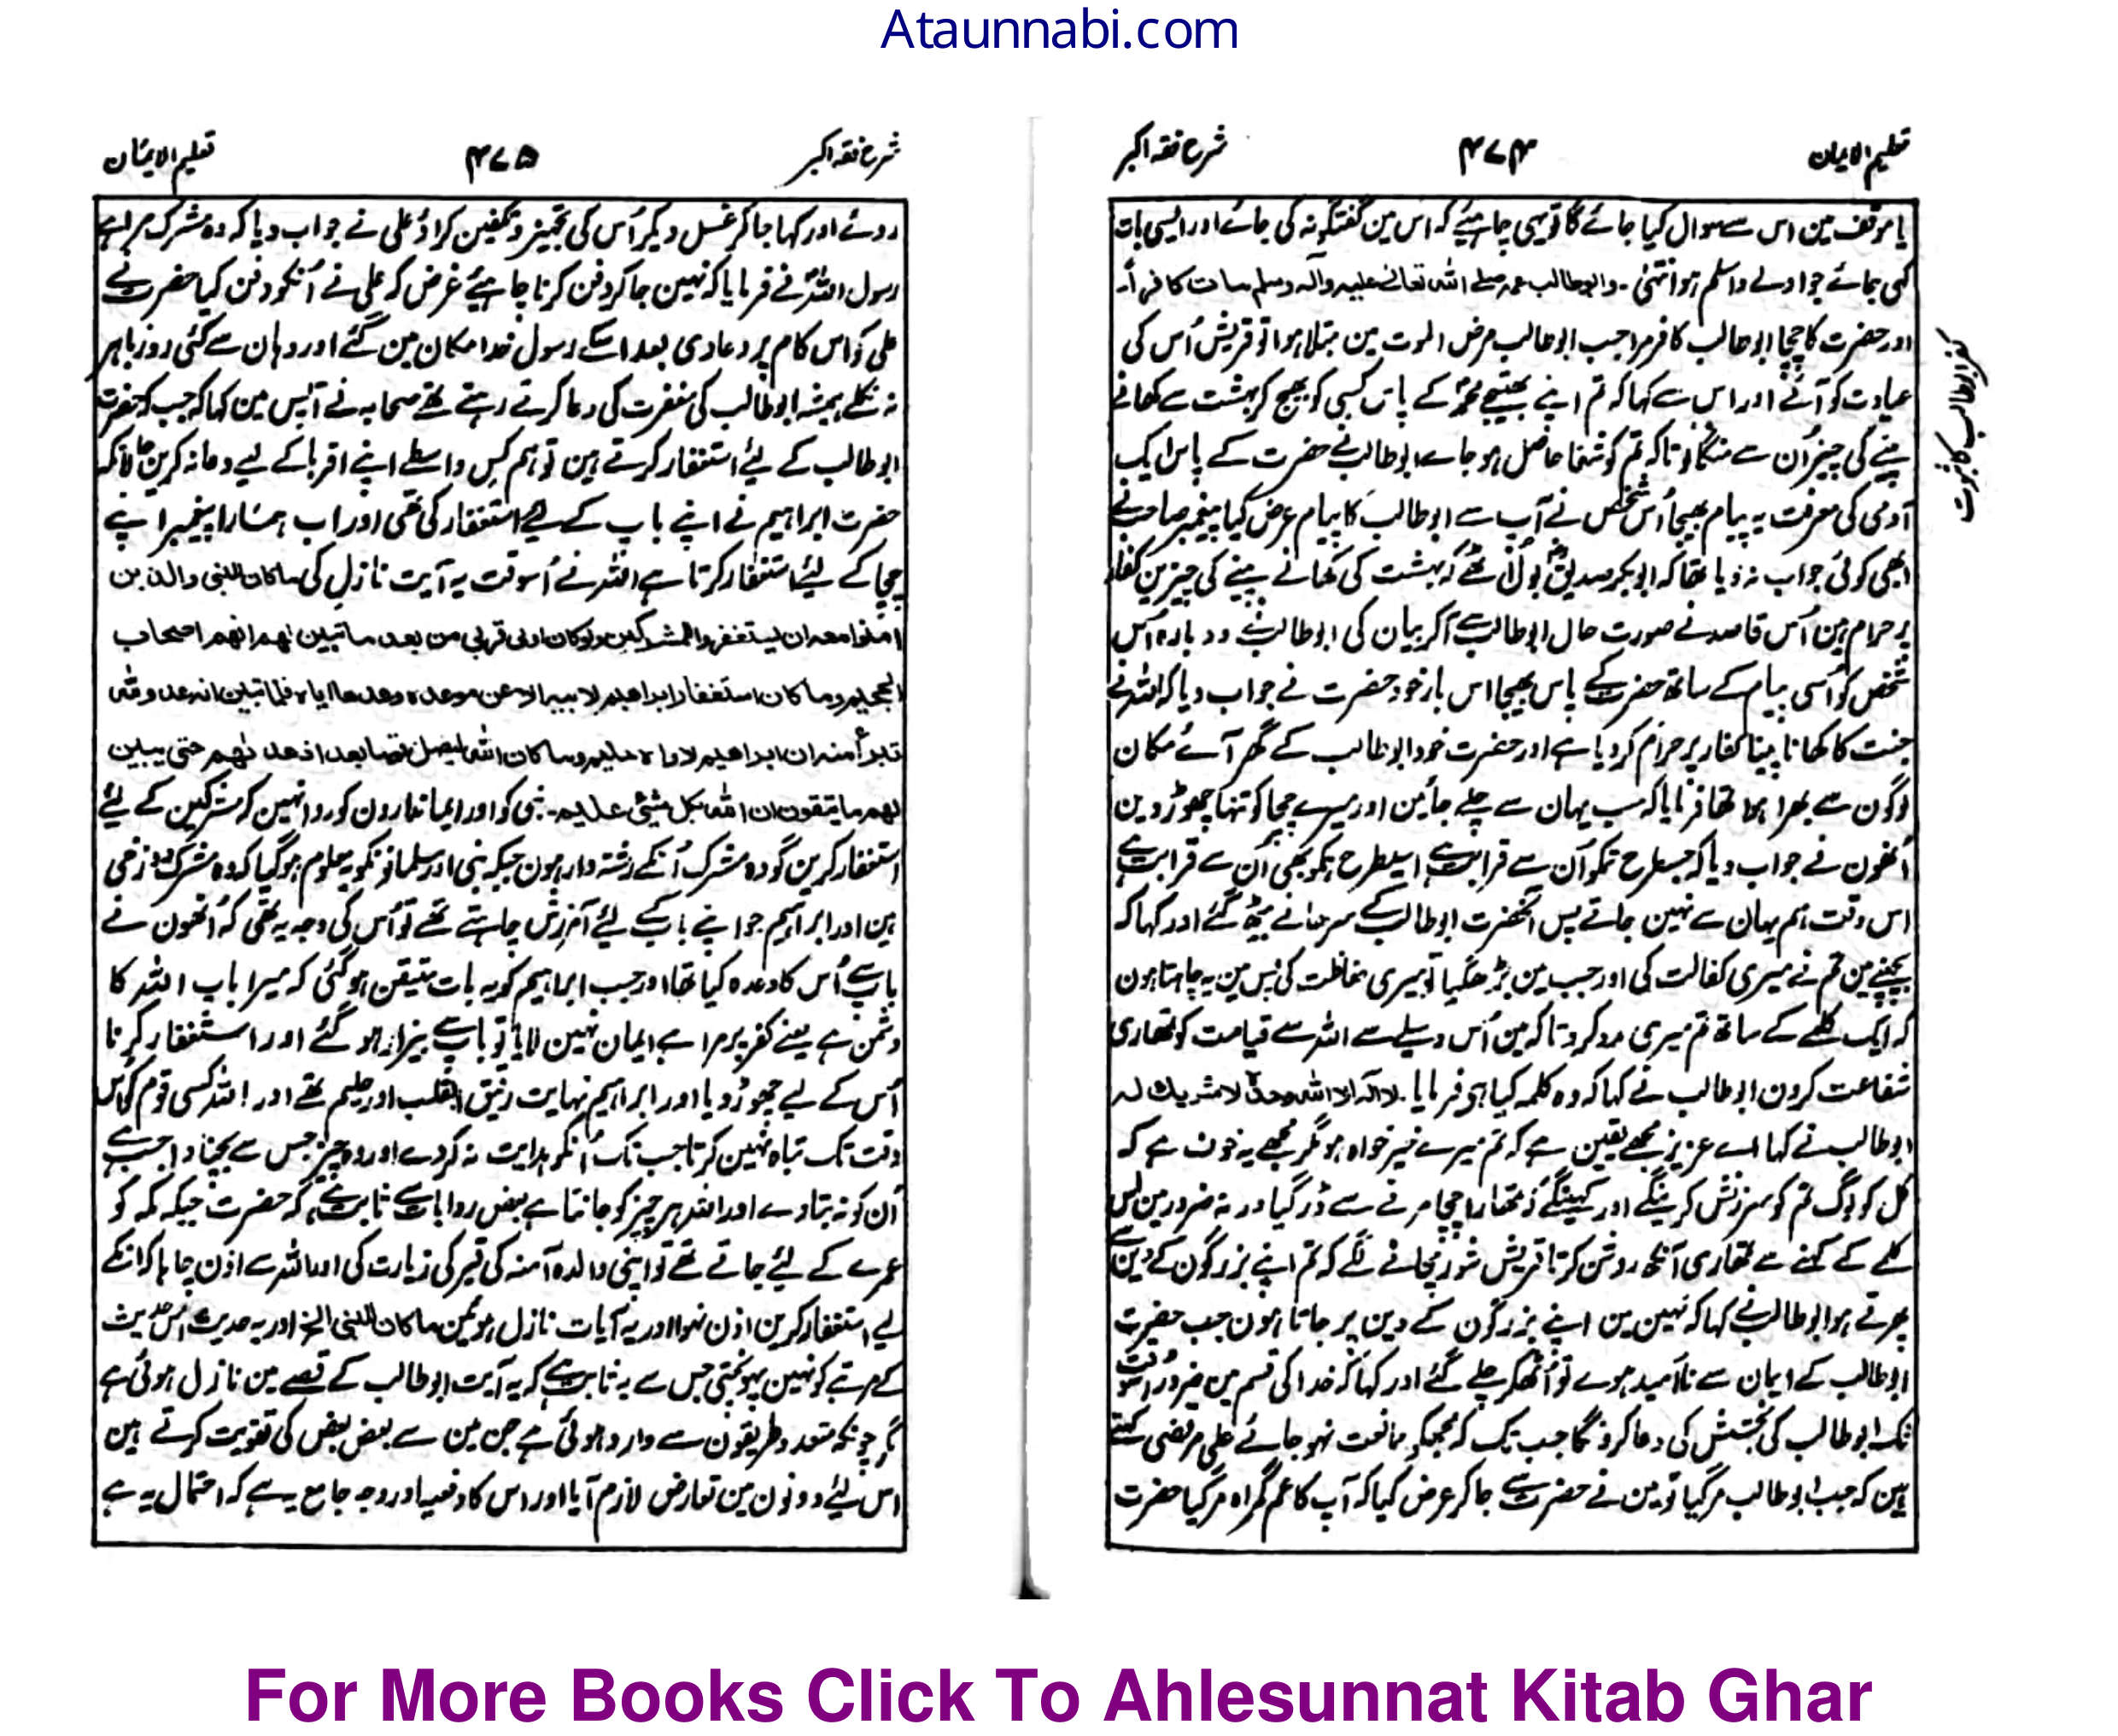 Ataunnabi.com
تعلیم الایمان ۴۷۴ شرح فقہ اکبر
یا موقف مین اس سے سوال کیا جائے گا تو یہی چاہیئے کہ اس مین گفتگو نہ کی جائے اور ایسی بات
کہی جائے جو اولے واسلم ہو انتہی ۔ وابوطالب عمہ صلے اللہ تعالے علیہ وآلہ وسلم مات کافراً۔
اور حضرت کا چچا ابوطالب کافر مرا جب ابوطالب مرض الموت مین مبتلا ہوا تو قریش اُس کی
عیادت کو آئے اور اس سے کہا کہ تم اپنے بھتیجے محمدؐ کے پاس کسی کو بھیج کر بہشت سے کھانے
پینے کی چیز اُن سے منگاؤ تاکہ تم کو شفا حاصل ہو جاے ابوطالب نے حضرت کے پاس ایک
آدمی کی معرفت یہ پیام بھیجا اُس شخص نے آپ سے ابوطالب کا پیام عرض کیا پیغمبر صاحب نے
ابھی کوئی جواب نہ دیا تھا کہ ابوبکر صدیقؓ بول اُٹھے کہ بہشت کی کھانے پینے کی چیزین کفار
پر حرام ہین اُس قاصد نے صورت حال ابوطالب سے آکر بیان کی ابوطالب نے دوبارہ اُس
شخص کو اُسی پیام کے ساتھ حضرت کے پاس بھیجا اس بار خود حضرت نے جواب دیا کہ اللہ نے
جنت کا کھانا پینا کفار پر حرام کر دیا ہے اور حضرت خود ابوطالب کے گھر آئے مکان
لوگون سے بھرا ہوا تھا فرمایا کہ سب یہان سے چلے جائین اور میرے چچا کو تنہا چھوڑ دین
اُنھون نے جواب دیا کہ جسطرح تمکو اُن سے قرابت ہے اسیطرح ہمکو بھی اُن سے قرابت ہے
اس وقت ہم یہان سے نہین جاتے پس آنحضرت ابوطالب کے سرہانے بیٹھ گئے اور کہا کہ
بچپنے مین تم نے میری کفالت کی اور جب مین بڑھ گیا تو میری حفاظت کی پس مین یہ چاہتا ہون
کہ ایک کلمے کے ساتھ تم میری مدد کرو تاکہ مین اُس وسیلے سے اللہ سے قیامت کو تمھاری
شفاعت کرون ابوطالب نے کہا کہ وہ کلمہ کیا ہی فرمایا ۔ لا الہ الا اللہ وحدہ لا شریك لہ
ابوطالب نے کہا اے عزیز مجھے یقین ہے کہ تم میرے خیر خواہ ہو مگر مجھے یہ خوف ہے کہ
کل کو لوگ تم کو سرزنش کرینگے اور کہینگے کہ تمھارا چچا مرنے سے ڈر گیا ورنہ ضرور مین اس
کلمے کے کہنے سے تمھاری آنکھ روشن کرتا قریش شور مچانے لگے کہ تم اپنے بزرگون کے دین سے
پھرتے ہو ابوطالب نے کہا کہ نہین مین اپنے بزرگون کے دین پر جاتا ہون جب حضرت
ابوطالب کے ایمان سے نا اُمید ہوے تو اُٹھکر چلے گئے اور کہا کہ خدا کی قسم مین ضرور اُسوقت
تک ابوطالب کی بخشش کی دعا کرونگا جب تک کہ مجھکو ممانعت نہو جائے علی مرتضی کہتے
ہین کہ جب ابوطالب مر گیا تو مین نے حضرت سے جا کر عرض کیا کہ آپ کا عم گمراہ مر گیا حضرت
کفر ابوطالب کا ثبوت
شرح فقہ اکبر ۴۷۵ تعلیم الایمان
روئے اور کہا جا کر غسل دیکر اُس کی تجہیز و تکفین کراؤ علی نے جواب دیا کہ وہ مشرک مرا ہے
رسول اللہؐ نے فرمایا کہ نہین جا کر دفن کرنا چاہیئے غرض کہ علی نے اُنکو دفن کیا حضرت نے
علی کو اس کام پر دعا دی بعد اسکے رسول خدا مکان مین گئے اور وہان سے کئی روز باہر
نہ نکلے ہمیشہ ابوطالب کی مغفرت کی دعا کرتے رہتے تھے صحابہ نے آپس مین کہا کہ جب کہ حضرت
ابوطالب کے لیئے استغفار کرتے ہین تو ہم کس واسطے اپنے اقربا کے لیے دعا نہ کرین حالانکہ
حضرت ابراہیم نے اپنے باپ کے لیے استغفار کی تھی اور اب ہمارا پیغمبر اپنے
چچا کے لیئے استغفار کرتا ہے اللہ نے اُسوقت یہ آیت نازل کی ماکان للنبی والذین
اٰمنوا معہ ان یستغفروا للمشرکین ولوکان اولی قربی من بعد ماتبین لھم انھم اصحاب
الجحیم وماکان استغفار ابراھیم لابیہ الا عن موعدة وعدھا ایاہ فلما تبین انہ عدو للہ
تبرأ منہ ان ابراھیم لاواہ حلیم وماکان اللہ لیضل قوما بعد اذ ھدٰىھم حتی یبین
لھم مایتقون ان اللہ بکل شیئ علیم ۔ نبی کو اور ایماندارون کو روا نہین کہ مشرکین کے لیئے
استغفار کرین گو وہ مشرک اُنکے رشتہ دار ہون جبکہ نبی اور مسلمانونکو یہ معلوم ہو گیا کہ وہ مشرک دوزخی
ہین اور ابراہیم جو اپنے باپ کے لیئے آمرزش چاہتے تھے تو اُس کی وجہ یہ تھی کہ اُنھون نے
باپ سے اُس کا وعدہ کیا تھا اور جب ابراہیم کو یہ بات متیقن ہو گئی کہ میرا باپ اللہ کا
دشمن ہے یعنے کفر پر مرا ہے ایمان نہین لایا تو باپ سے بیزار ہو گئے اور استغفار کرنا
اُس کے لیے چھوڑ دیا اور ابراہیم نہایت رفیق القلب اور حلیم تھے اور اللہ کسی قوم کو اُس
وقت تک تباہ نہین کرتا جب تک اُنکو ہدایت نہ کردے اور وہ چیز جس سے بچنا واجب ہے
اُن کو نہ بتا دے اور اللہ ہر چیز کو جانتا ہے بعض روایات سے ثابت ہے کہ حضرت جبکہ مکہ کو
عمرے کے لیئے جاتے تھے تو اپنی والدہ آمنہ کی قبر کی زیارت کی اور اللہ سے اذن چاہا کہ انکے
لیے استغفار کرین اذن نہوا اور یہ آیات نازل ہوئین ماکان للنبی الخ اور یہ حدیث اُس حدیث
کے مرتبے کو نہین پہونچتی جس سے یہ ثابت ہے کہ یہ آیت ابوطالب کے قصے مین نازل ہوئی ہے
مگر چونکہ متعدد طریقون سے وارد ہوئی ہے جن مین سے بعض بعض کی تقویت کرتے ہین
اس لیئے دونون مین تعارض لازم آیا اور اس کا دفعیہ اور وجہ جامع یہ ہے کہ احتمال یہ ہے
For More Books Click To Ahlesunnat Kitab Ghar